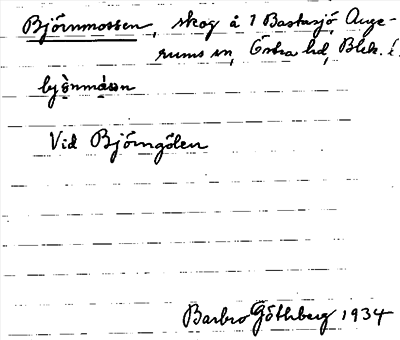 Björnmossen, skog å 1 Bastasjö, Auge-
rums sn, Östra hd, Blek. l.
bjö̀nmå̀sn
Vid Björngölen
Barbro Göthberg 1934